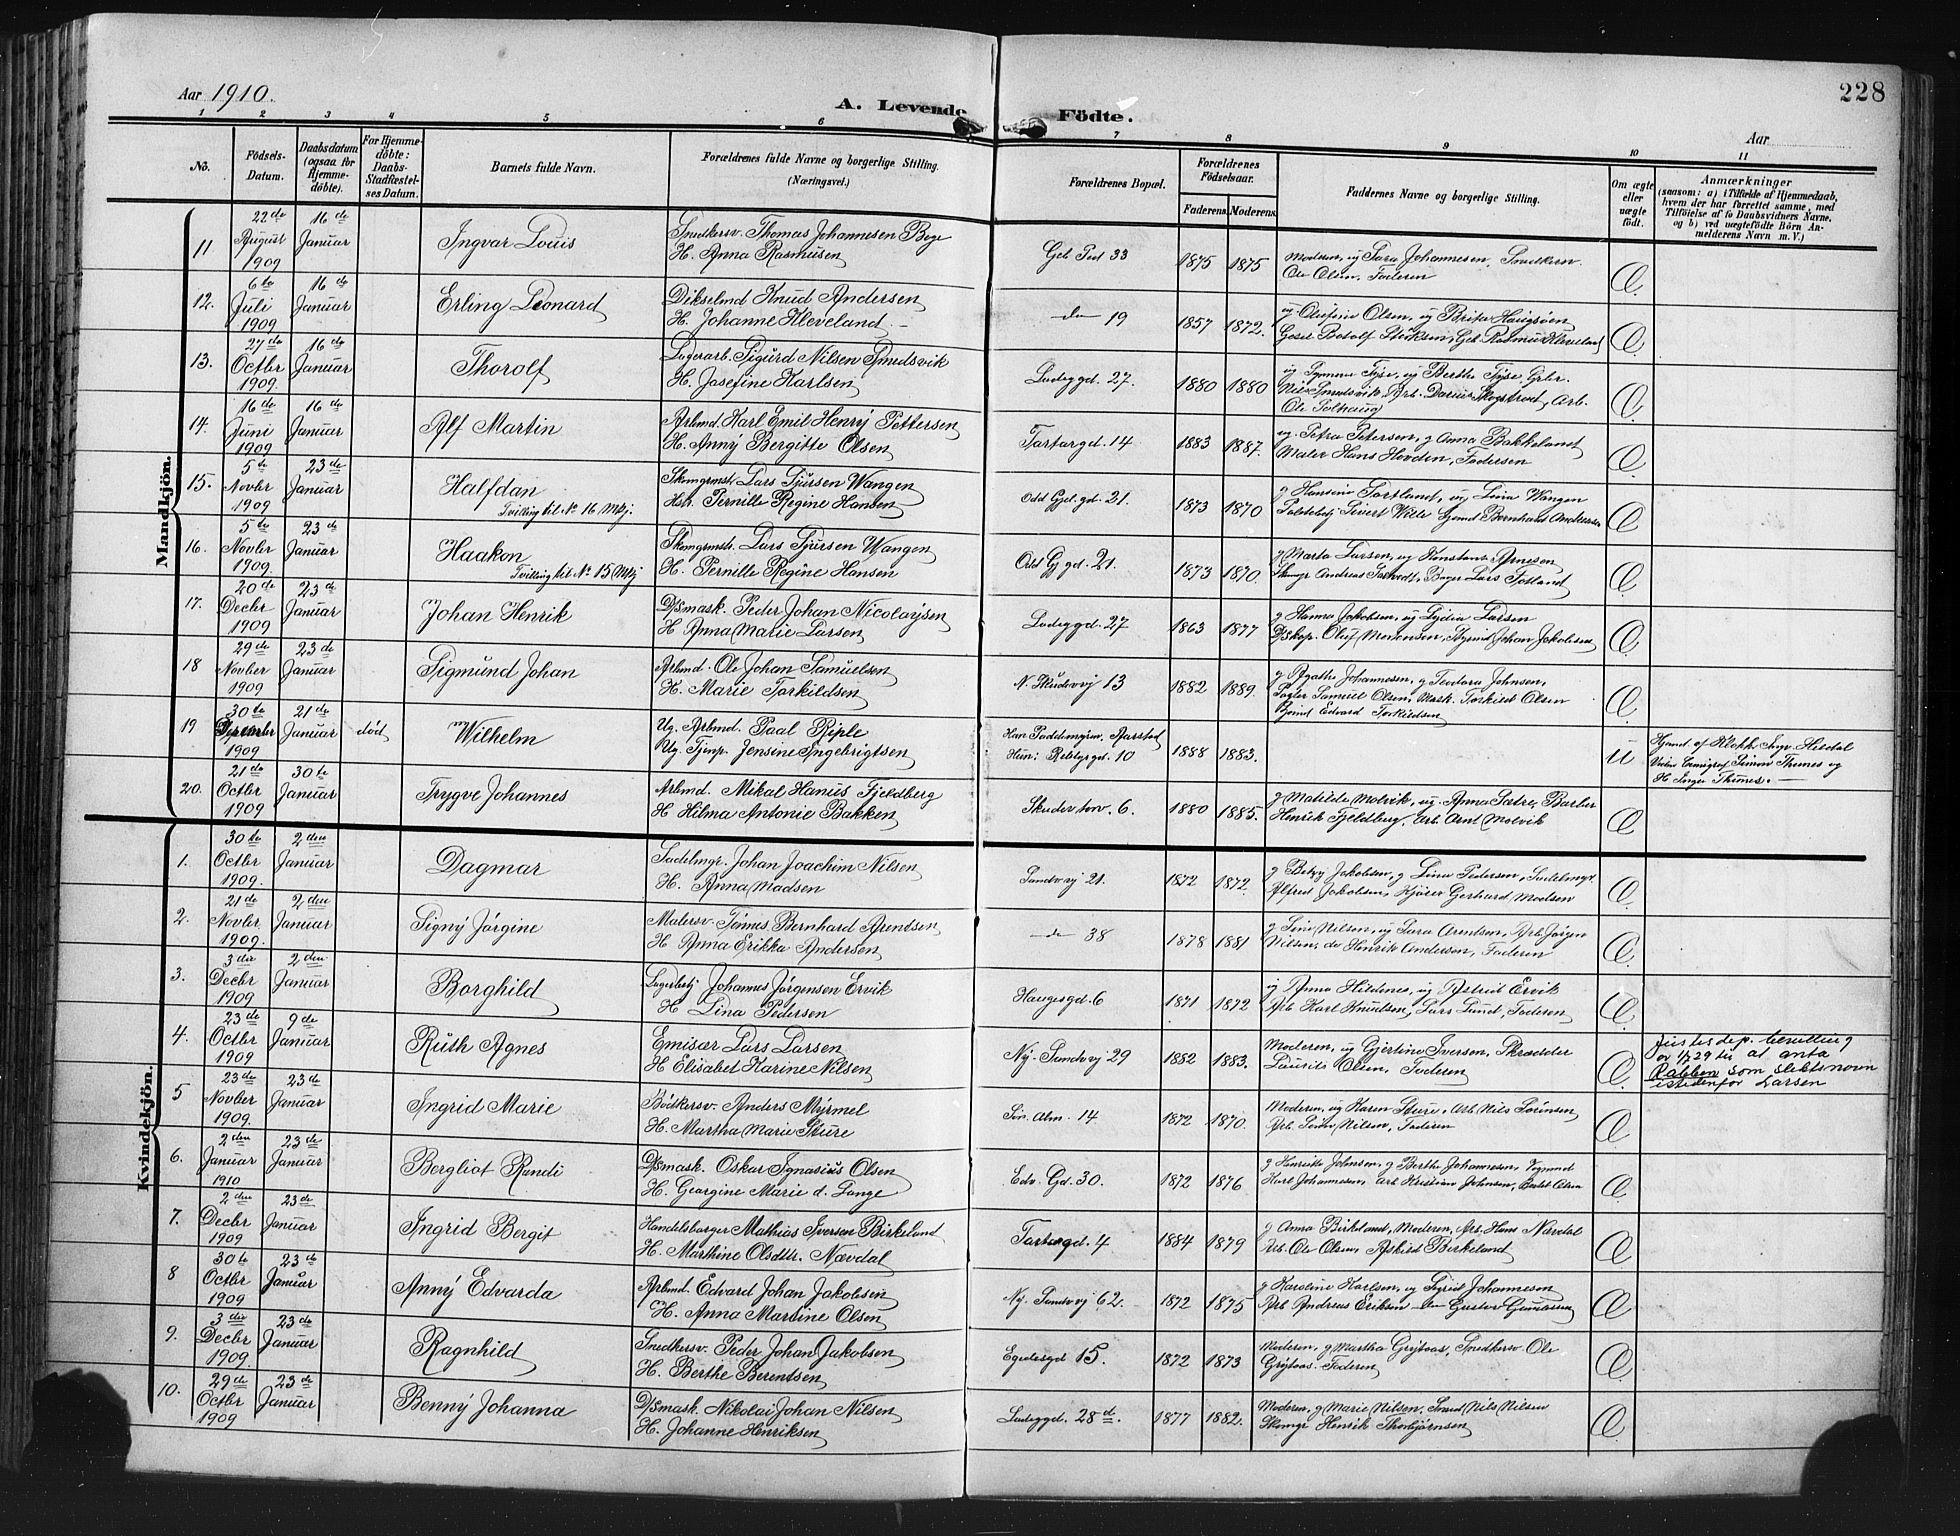 Aar 1910.
A. Levende Födte.
228
Aar
1 2 3 4 5 6 7 8 9 10 11
No.
Födsels-
Datum.
Daabsdatum
(ogsaa for
Hjemme-
döbte).
For Hjemme-
döbte:
Daabs-
Stadfæstel-
ses Datum.
Barnets fulde Navn.
Forældrenes fulde Navne og borgerlige Stilling.
(Næringsvei.)
Forældrenes Bopæl.
Forældrenes
Födselsaar.
Faderens. Moderens.
Faddernes Navne og borgerlige Stilling.
Om ægte
eller
uægte
födt.
Anmærkninger
(saasom: a) i Tilfælde af Hjemmedaab,
hvem der har forrettet samme, med
Tilföielse af to Daabsvidners Navne,
og b) ved uægtefödte Börn An-
melderens Navn m. V.)
Mandkjön.
11 22de August 1909 16de Januar Ingvar Louis
Snedkersv. Thomas Johannesen Boge
H. Anna Rasmusen
33 1875 1875
Moderen, ug Sara Johannesen, Snedkersv.
Ole Olsen, Faderen
12. 6te Juli 1909 16de Januar Erling Leonard
Knud Andersen
H. Johanne Kleveland
do 19 1857 1872.
ug Olufine Olsen, ug Brita Haugsøen
13. 27de Octbr 1909. 16de Januar Thorolf
Lagerarb. Sigurd Nilsen Smedsvik
H. Josefine Karlsen
Ladeggd. 27. 1880 1880
14. 16de Juni 1909 16de Januar Alf Martin
Arbmd. Karl Emil Henry Pettersen
H. Anny Bergitte Olsen
Tartargd. 14 1883 1887.
ug. Petra Petersen, g Anna Bakkelund
Maler Hans Hovden, Faderen
15. 5te Novbr 1909 23de Januar Halfdan
Tvilling til No 16 Mkj.
Skomgrmstr. Lars Sjursen Wangen
Hstr. Pernille Regine Hansen
Odd Gjel. gd. 21. 1873 1870
Lina Wangen
16. 5te Novbr 1909. 23de Januar Haakon
Tvilling til No 15 Mkj
Skomgrmstr. Lars Sjursen Wangen
H. Pernille Regine Hansen
Odd Gj gd. 21. 1873 1870.
g Marta Larsen, ug Konstanse Arnesen
17. 20de Decbr 1909 23de Januar Johan Henrik
D/Smask. Peder Johan Nicolaysen
H Anna Marie Larsen
Ladeggd. 27 1863 1877
g Hanna Jakobsen, ug Lydia Larsen
18 29de Novber 1909 23de Januar Sigmund Johan
Arbmd. Ole Johan Samuelsen
H. Marie Torkildsen
N. Skudevig 13 1882 1889.
g Agathe Johannesen, g Teodora Johnsen,
Samuel Olsen, Mask. Torkild Olsen
Edvard Torkildsen
19 30te 1909 21de Januar død Wilhelm
Ug. Arbmd. Paal Riple
Ug. Tjenp. Jensine Ingebrigtsen
Hun: Rebbergd. 10 1888 1883. U
20. 21de Octbr 1909 30te Januar Trygve Johannes
Arbmd. Mikal Hanus Fjeldberg
H Hilma Antonie Bakken
6. 1880 1885.
g Matilde Molvik, ug. Anna Sætre, Barber
Henrik Fjeldberg, Arb. Arnt Molvik
Kvindekjön.
1. 30te Octbr 1909. 2den Januar Dagmar
Sadelmgr. Johan Joachim Nilsen
H. Anna Madsen
Sandvig 21. 1872 1872.
g Betzy Jakobsen, g Lina Pedersen, Sadelmgr.
Alfred Jakobsen, Gerhard Madsen
2. 21de Novbr. 1909. 2den Januar Signy Jørgine
Malersv. Tønnes Bernhard Arentsen
H Anna Erikka Andersen
do 38 1878 1881
g Sina Nilsen, ug Sara Arentsen, Arb. Jørgen
Nilsen, do Henrik Andersen, Faderen
3. 3die Decbr 1909 2den Januar Borghild
Johannes Jørgensen Ervik
H Lina Pedersen
Haugesgd 6 1871 1872
ug Anna Hildenes, ug Astrid Ervik
Arb Karl Knudsen, Lars Lund, Faderen
4. 23de Octbr 1909 9de Januar Ruth Agnes
Emisær Lars Larsen
H Elisabet Karine Nilsen
Ny. Sandvig 29 1882 1883.
Moderen, ug Gjertine Iversen, Skrædder
Laurits Olsen, Faderen
Justisdep. bevilling
av 1/7 29 til at anta
Rabben som slektsnavn
istedenfor Larsen
5 23de Novber 1909. 23de Januar Ingrid Marie
Bødkersv. Anders Myrmel
H. Martha Marie Sture
Søn. Alm. 14 1872 1870.
Moderen, ug Karen Sture, Arb. Nils Sørensen
Nilsen, Faderen
6. 2den Januar 1910 23de Januar Bergliot Randi
D/Smask. Oskar Ignasius Olsen
H. Georgine Marie d. Lange
Edv. Gd. 30. 1872 1876.
g Henrikke Johnsen, g Berthe Johannesen,
Karl Johannesen, Arb. Kristian Johnsen,
7. 2den Decbr 1909 23de Januar Ingrid Bergit
Handelsborger Mathias Iversen Birkeland
H. Marthine Olsdtr. Nævdal
Tartargd. 4 1884 1879
g Anna Birkeland, Moderen, Arb. Hans Nævdal
Arb. Ole Olsen, Birkeland
8 30te Octbr 1909 23de Januar Anny Edvarda
Arbmd. Edvard Johan Jakobsen
H. Anna Martine Olsen
Ny. Sandvig 62. 1872 1875
g Karoline Karlsen, ug Sigrid Johannesen
Arb Andreas Eriksen
9. 3die Decbr 1909 23de Januar Ragnhild
Snedkersv. Peder Johan Jakobsen
H. Berthe Berentsen
Egedesgd 15. 1872 1873
Moderen, g Martha Grytaas, Snedkersv Ole
Grytaas. Faderen
10. 29de Octbr 1909 23de Januar Benny Johanna
D/Smask. Nikolai Johan Nilsen
H. Johanne Henriksen
Ladeggd. 28d. 1877 1882.
Moderen, g Marie Nilsen, Nils Nilsen
Skomgr Henrik Thorbjørnsen